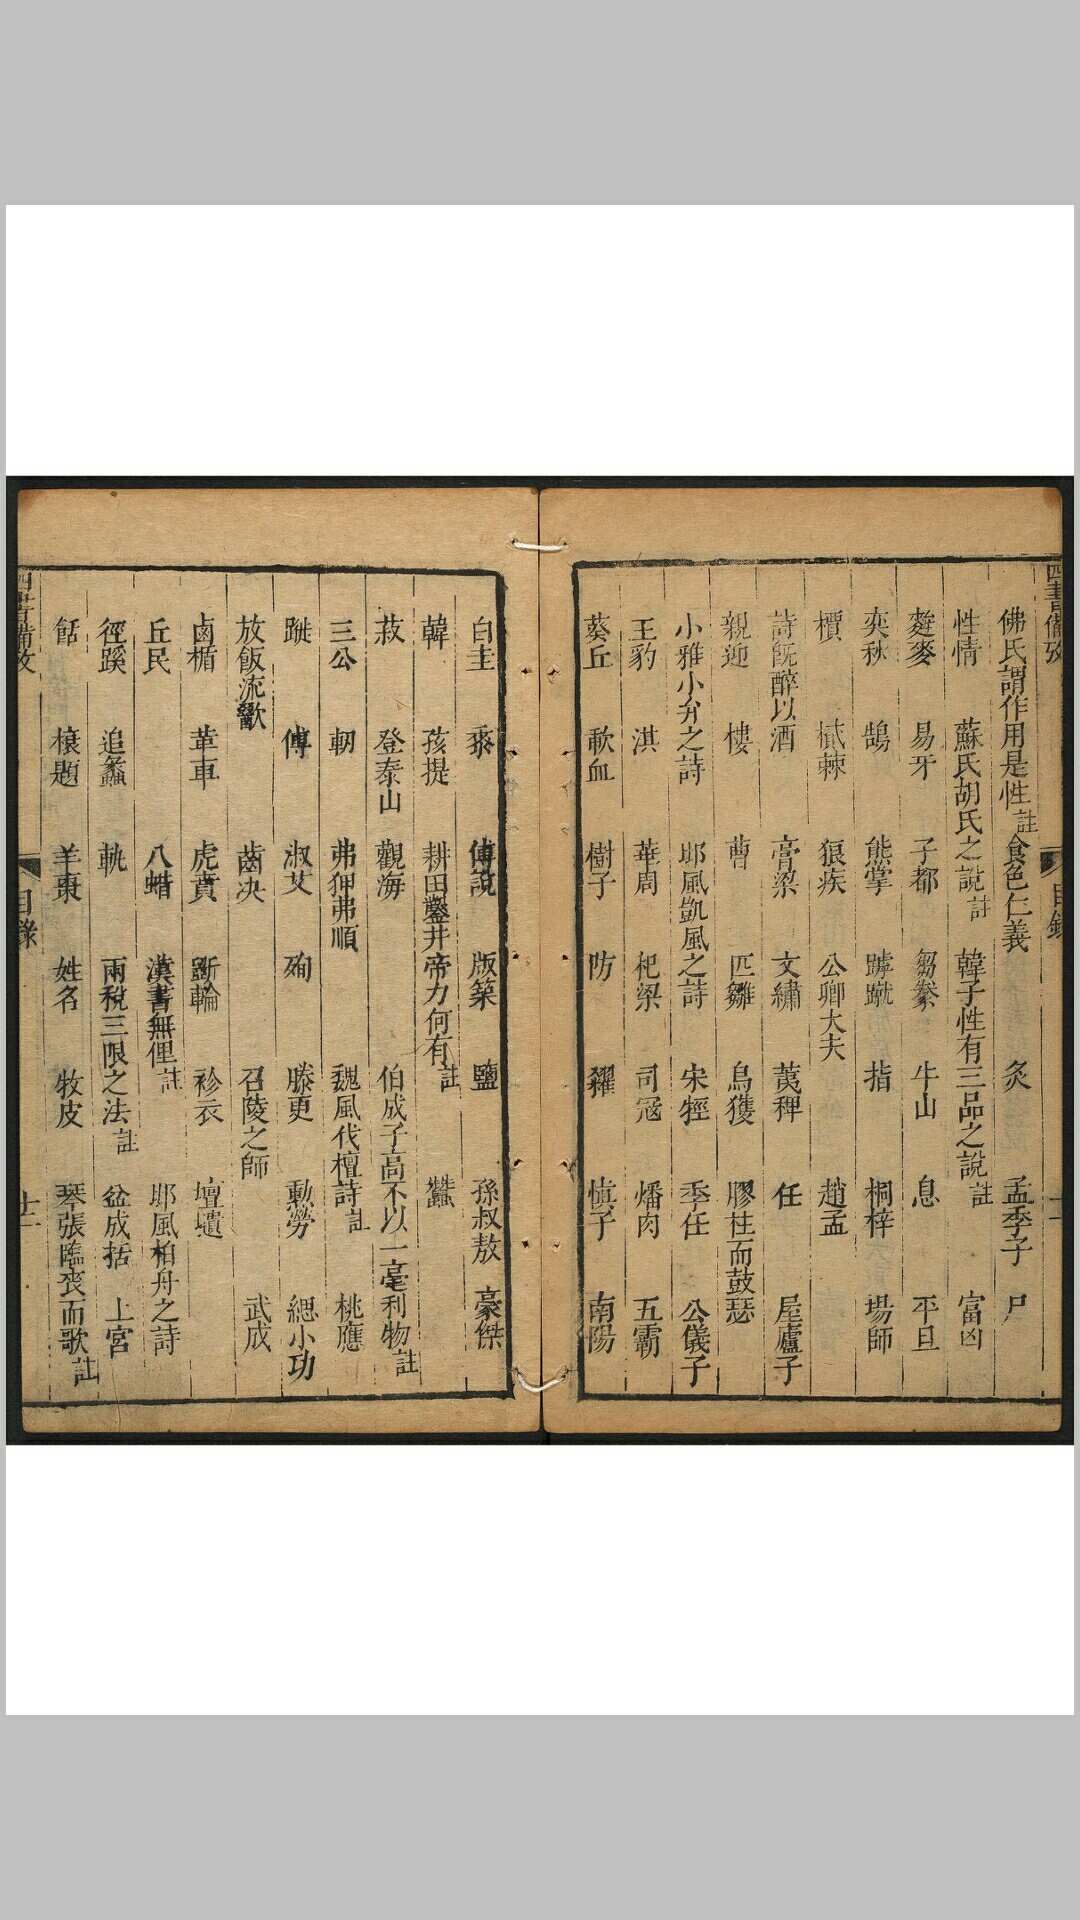 四書備攷 目錄 十一
佛氏謂作用是性註 食色仁義 炙 孟季子 尸
性情 蘇氏胡氏之說註 韓子性有三品之說註 富凶
麰麥 易牙 子都 芻豢 牛山 息 平旦
奕秋 鵠 熊掌 蹲蹴 指 桐梓 場師
檟 樲棘 狼疾 公卿大夫 趙孟
詩旣醉以酒 膏粱 文繡 荑稗 任 屋廬子
親迎 樓 曹 匹雛 烏獲 膠柱而鼓瑟
小雅小弁之詩 邶風凱風之詩 宋牼 季任 公儀子
王豹 淇 華周 杞梁 司冦 燔肉 五霸
葵丘 歃血 樹子 防 糴 慎子 南陽
白圭 黍 傅說 版築 鹽 孫叔敖 豪傑
韓 孩提 耕田鑿井帝力何有註 蠶
菽 登泰山 觀海 伯成子高不以一毫利物註
三公 軔 弗狎弗順 魏風伐檀詩註 桃應
蹝 傅 淑艾 殉 滕更 勲勞 緦小功
放飯流歠 齒决 召陵之師 武成
鹵楯 革車 虎賁 斵輪 袗衣 壇壝
丘民 八蜡 漢書無俚註 邶風柏舟之詩
徑蹊 追蠡 軌 兩稅三限之法註 盆成括 上宮
餂 榱題 羊棗 姓名 牧皮 琴張臨喪而歌註
四書備攷 目錄 十一